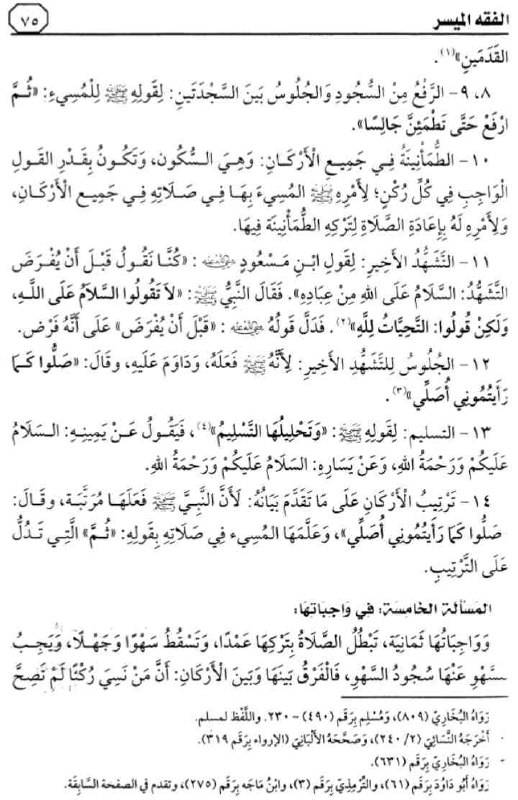 الفقه الميسر
٧٥
القَدَمَينِ»(١).
٨، ٩- الرَّفْعُ مِنَ السُّجُودِ وَالجُلُوسُ بَينَ السَّجْدَتَينِ: لِقَولِهِ ﷺ لِلْمُسِيءِ: «ثُمَّ
ارْفَعْ حَتَّى تَطْمَئِنَّ جَالِسًا».
١٠- الطُّمَأنِينَةُ فِي جَمِيعِ الْأَرْكَانِ: وَهِيَ السُّكُون، وَتَكُونُ بِقَدْرِ القَولِ
الْوَاجِبِ فِي كُلِّ رُكْنٍ؛ لِأَمْرِهِ ﷺ المُسِيءَ بِهَا فِي صَلَاتِهِ فِي جَمِيعِ الْأَرْكَانِ،
وَلِأَمْرِهِ لَهُ بِإِعَادَةِ الصَّلَاةِ لِتَرْكِهِ الطُّمَأْنِينَة فِيهَا.
١١- التَّشَهُّدُ الأَخِيرُ: لِقَولِ ابْنِ مَسْعُودٍ رضي الله عنه: «كُنَّا نَقُولُ قَبْلَ أَنْ يُفْرَضَ
التَّشَهُّدُ: السَّلَامُ عَلَى اللهِ مِنْ عِبَادِهِ». فَقَالَ النَّبِيُّ ﷺ: «لاَ تَقُولُوا السَّلاَمُ عَلَى اللهِ،
وَلَكِنْ قُولُوا: التَّحِيَّاتُ لِلَّهِ»(٢). فَدَلَّ قَولُهُ رضي الله عنه: «قَبْلَ أَنْ يُفْرَضَ» عَلَى أَنَّهُ فَرْض.
١٢- الجُلُوسُ لِلتَّشَهُّدِ الأَخِيرِ: لِأَنَّهُ ﷺ فَعَلَهُ، وَدَاوَمَ عَلَيهِ، وقال: «صَلُّوا كَمَا
رَأَيتُمُونِي أُصَلِّي»(٣).
١٣- التسليم: لِقَولِهِ ﷺ: «وَتَحْلِيلُهَا التَّسْلِيمُ»(٤)، فَيَقُولُ عَنْ يَمِينِهِ: السَّلَامُ
عَلَيكُمْ وَرَحْمَةُ اللهِ، وَعَنْ يَسَارِهِ: السَّلَامُ عَلَيكُمْ وَرَحْمَةُ اللهِ.
١٤- تَرْتِيبُ الْأَرْكَانِ عَلَى مَا تَقَدَّمَ بَيَانُهُ: لَأَنَّ النَّبِيَّ ﷺ فَعَلَهَا مُرَتَّبَة، وقَالَ:
صَلُّوا كَمَا رَأَيتُمُونِي أُصَلِّي»، وَعَلَّمَهَا المُسِيء فِي صَلَاتِهِ بِقَولِهِ: «ثُمَّ» الَّتِي تَدُلُّ
عَلَى التَّرْتِيبِ.
المسألة الخامسة: في واجباتها:
وَوَاجِبَاتُهَا ثَمَانِيَة، تَبْطُلُ الصَّلَاةُ بِتَرْكِهَا عَمْدًا، وَتَسْقُطُ سَهْوًا وَجَهْلًا، وَيَجِبُ
لِلسَّهْوِ عَنْهَا سُجُودُ السَّهْوِ، فَالْفَرْقُ بَينَهَا وَبَينَ الأَرْكَانِ: أَنَّ مَنْ نَسِيَ رُكْنًا لَمْ تَصِحَّ
رَوَاهُ البُخَارِيّ (٨٠٩)، وَمُسْلِم بِرَقَم (٤٩٠) -٢٣٠. واللَّفْظ لمسلم.
أَخْرَجَهُ النَّسَائِيّ (٢/ ٢٤٠)، وَصَحَّحَهُ الْأَلْبَانِيّ (الإرواء بِرَقَم ٣١٩).
رَوَاهُ البُخَارِيّ بِرَقَم (٦٣١).
رَوَاهُ أَبُو دَاوُدَ بِرَقَم (٦١)، والتِّرْمِذِيّ بِرَقَم (٣)، وابْنُ مَاجَه بِرَقَم (٢٧٥)، وتقدم في الصفحة السَّابِقَة.